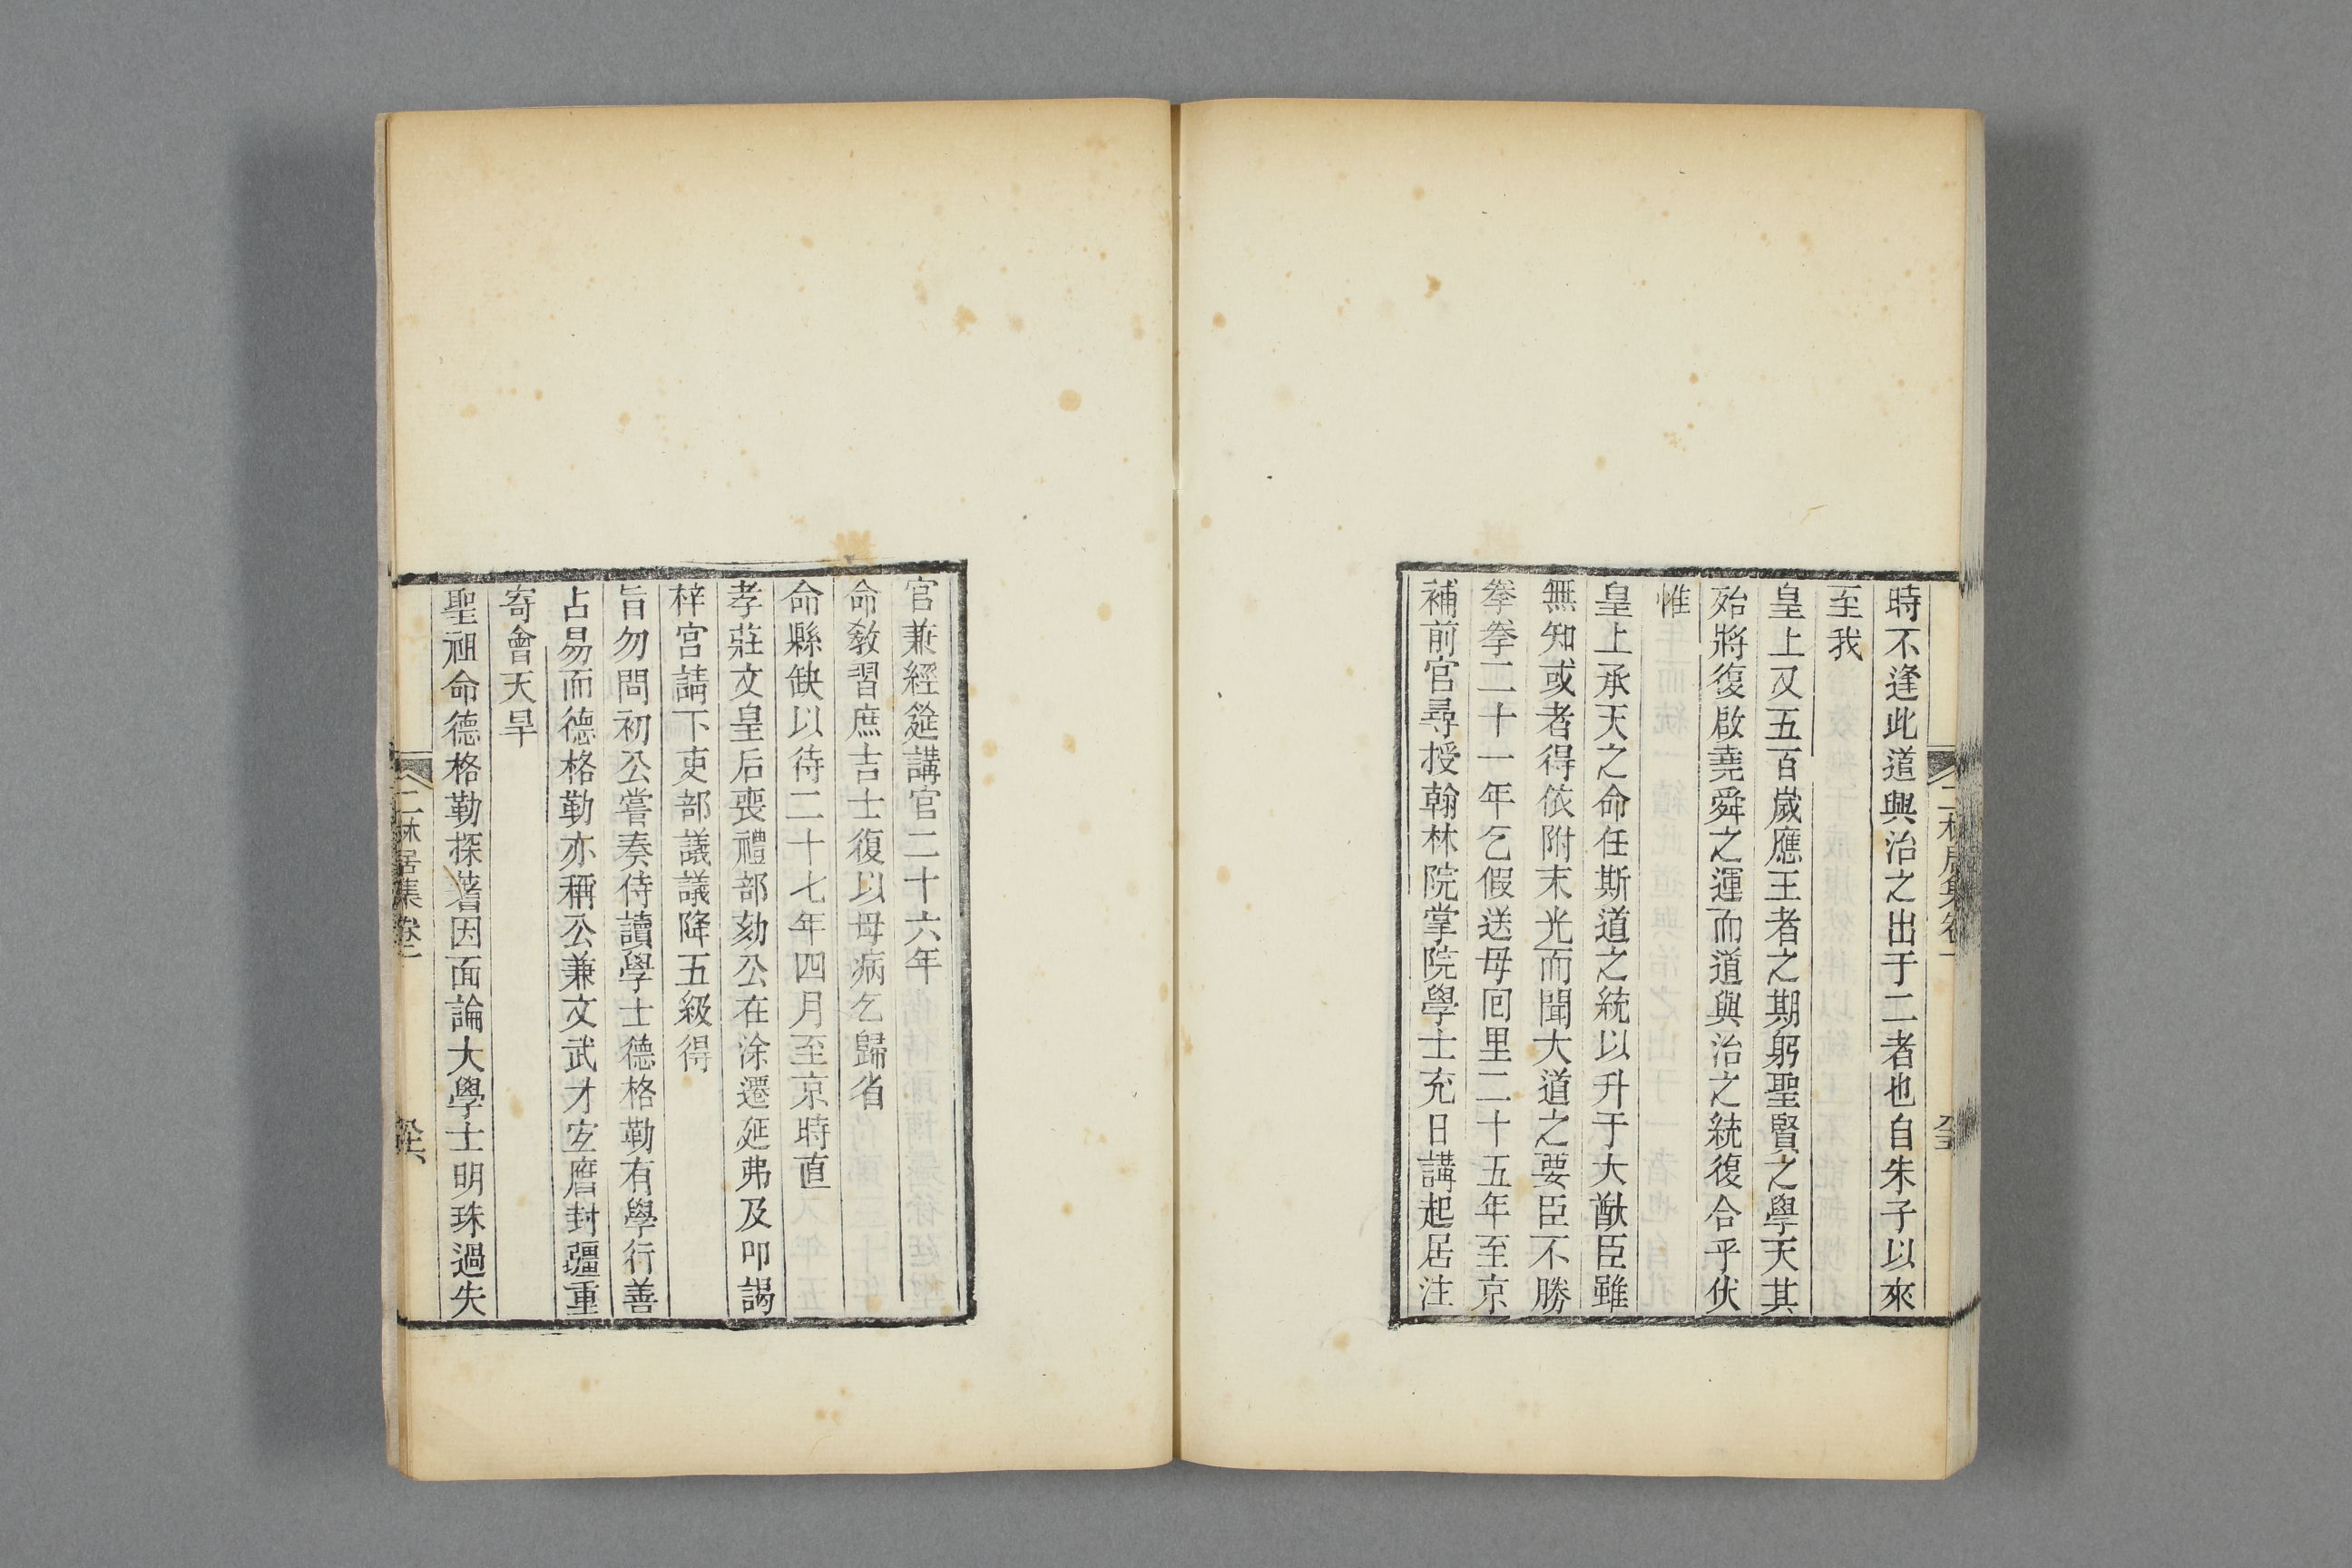 時不逢此道與治之出于二者也自朱子以來
至我
皇上又五百歲應王者之期躬聖賢之學天其
殆將復啟堯舜之運而道與治之統復合乎伏
惟
皇上承天之命任斯道之統以升于大猷臣雖
無知或者得依附末光而聞大道之要臣不勝
拳拳二十一年乞假送母回里二十五年至京
補前官尋授翰林院掌院學士充日講起居注
官兼經筵講官二十六年
命敎習庶吉士復以母病乞歸省
命縣缺以待二十七年四月至京時直
孝莊文皇后喪禮部劾公在涂遷延弗及叩謁
梓宮請下吏部議議降五級得
旨勿問初公嘗奏侍讀學士德格勒有學行善
占易而德格勒亦稱公兼文武才宜膺封疆重
寄會天旱
聖祖命德格勒探蓍因面論大學士明珠過失
二林居集卷